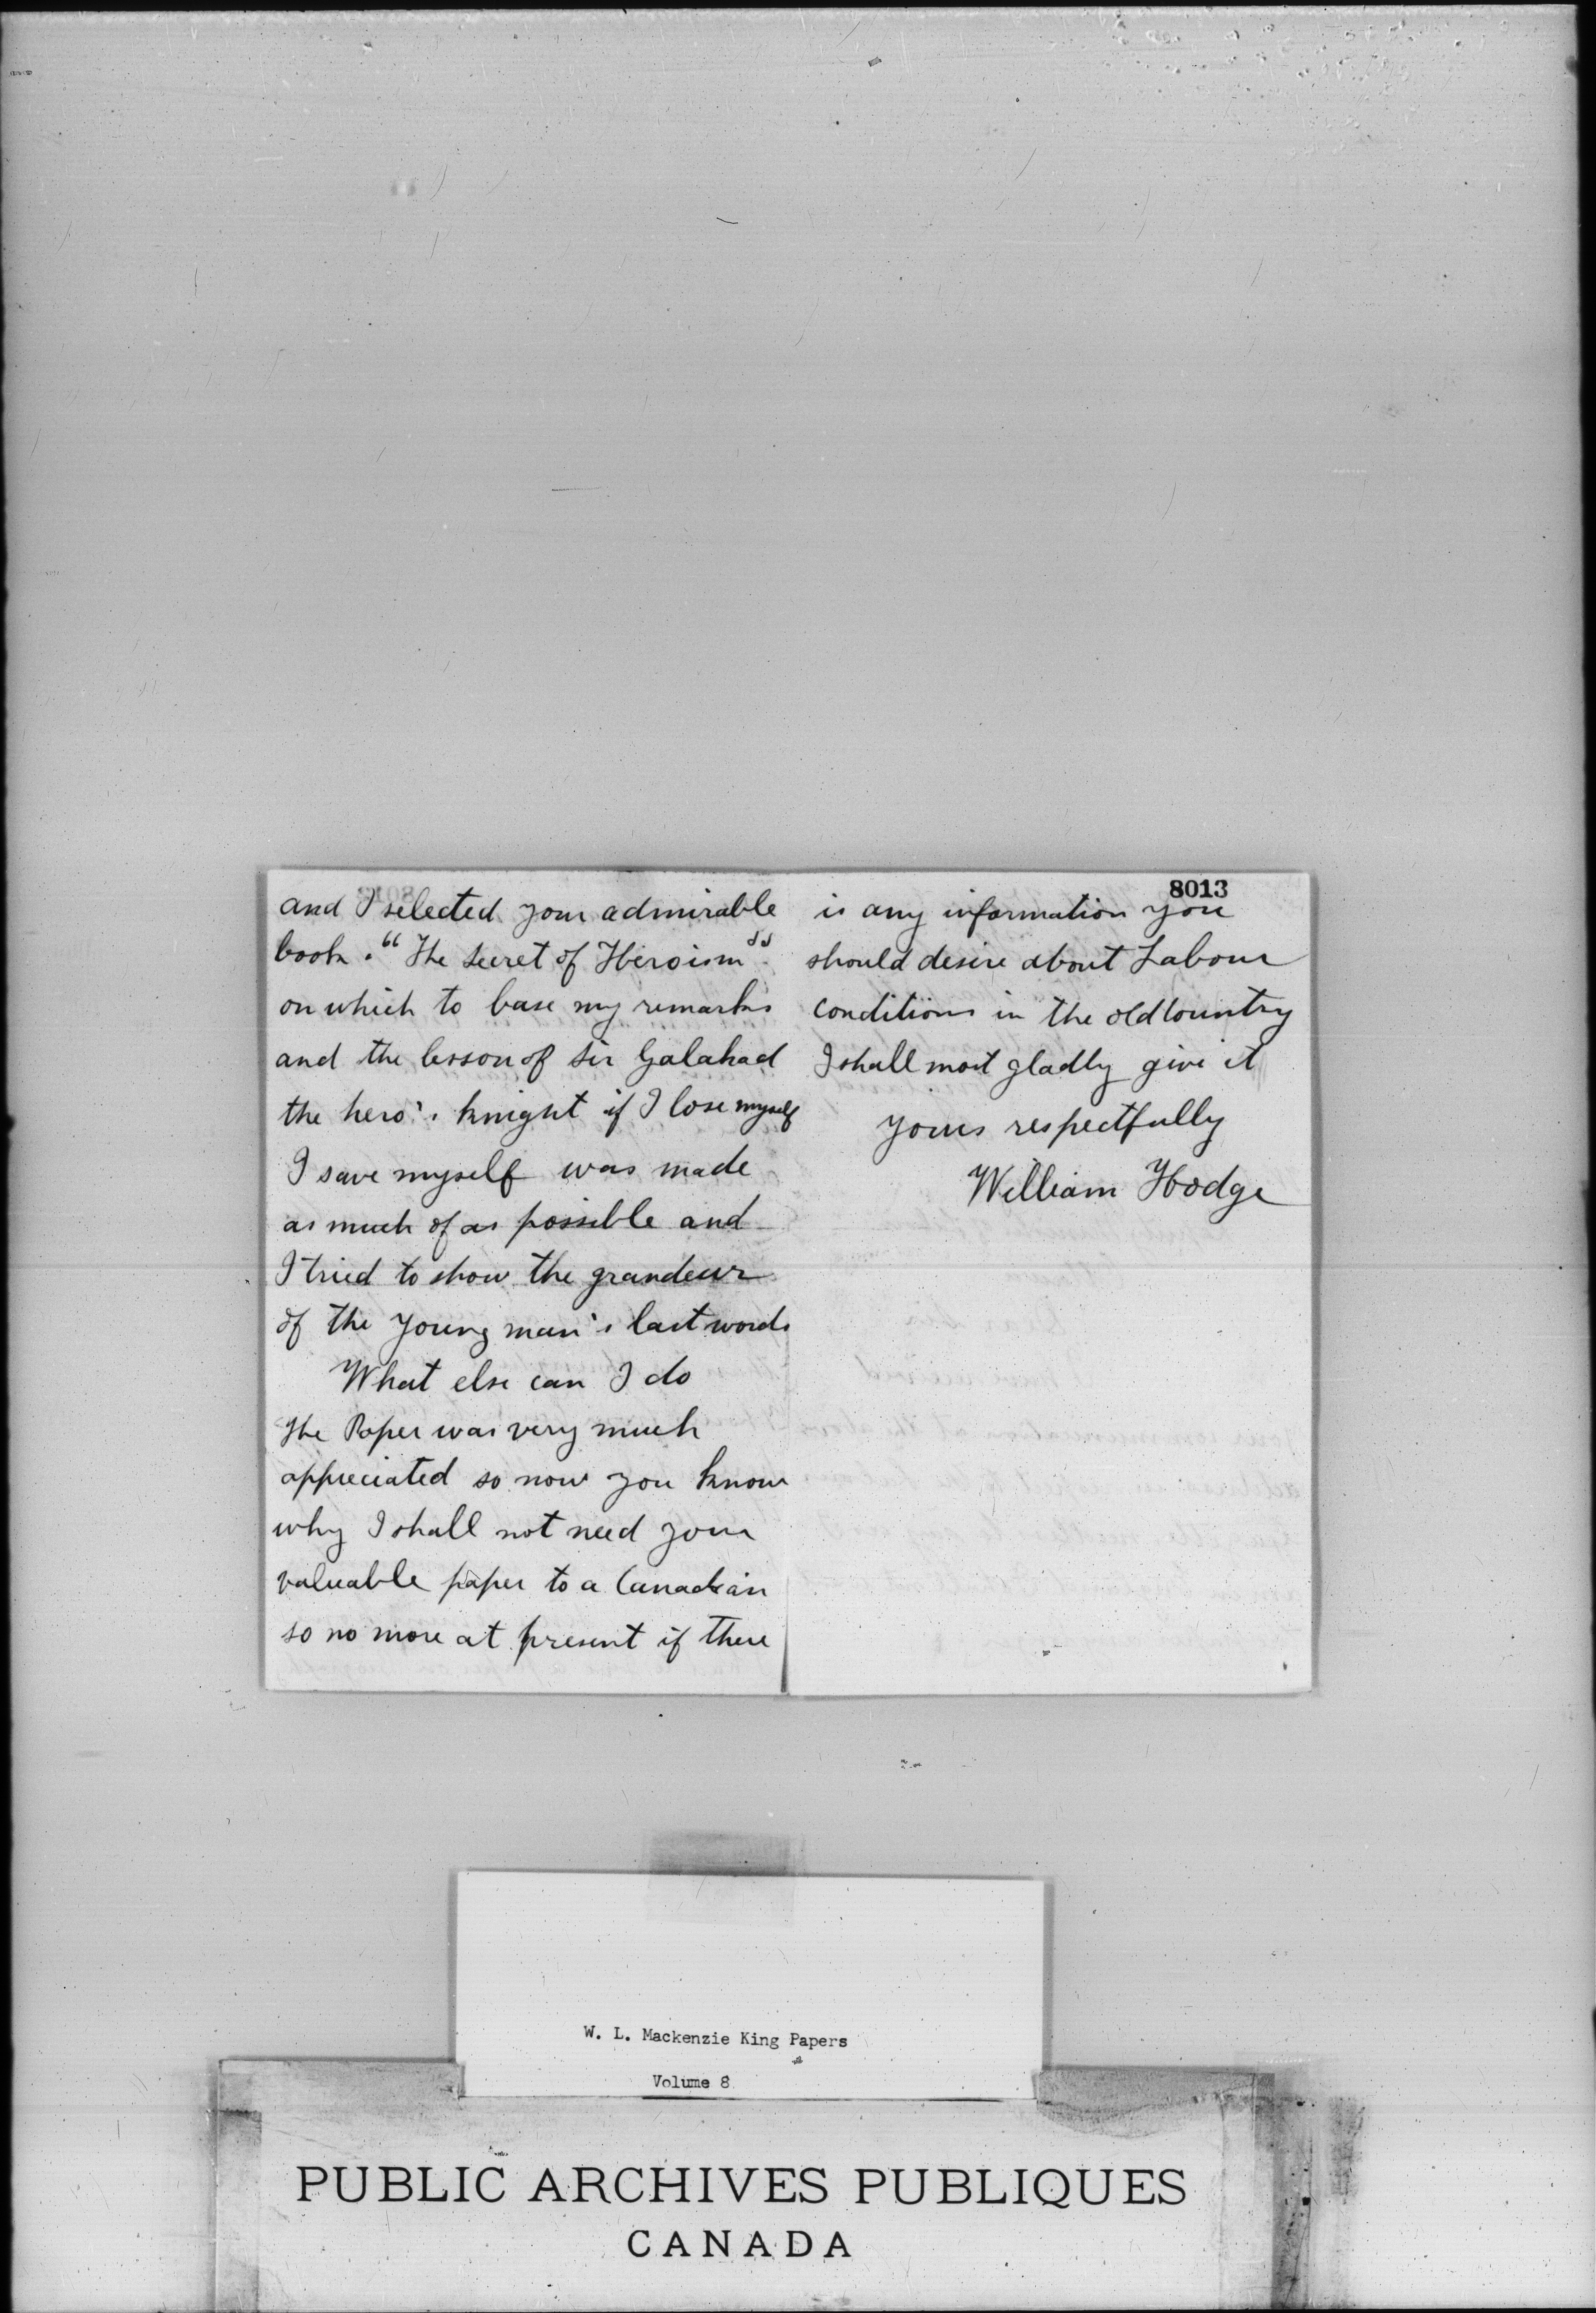 and I selected your admirable
book. "The Secret of Heroism".
on which to base my remarks
and the lesson of Sir Galahad
the hero's knight if I lose myself
I save myself was made
as much of as possible and
I tried to show the grandeur
of the young man's last words
What else can I do
The Paper was very much
appreciated so now you know
why I shall not need your
valuable paper to a Canadian
so no more at present if there
8013
is any information you
should desire about Labour
conditions in the old Country
I shall most gladly give it
yours respectfully
William Hodge
W. L. Mackenzie King Papers
Volume 8
PUBLIC ARCHIVES PUBLIQUES
CANADA